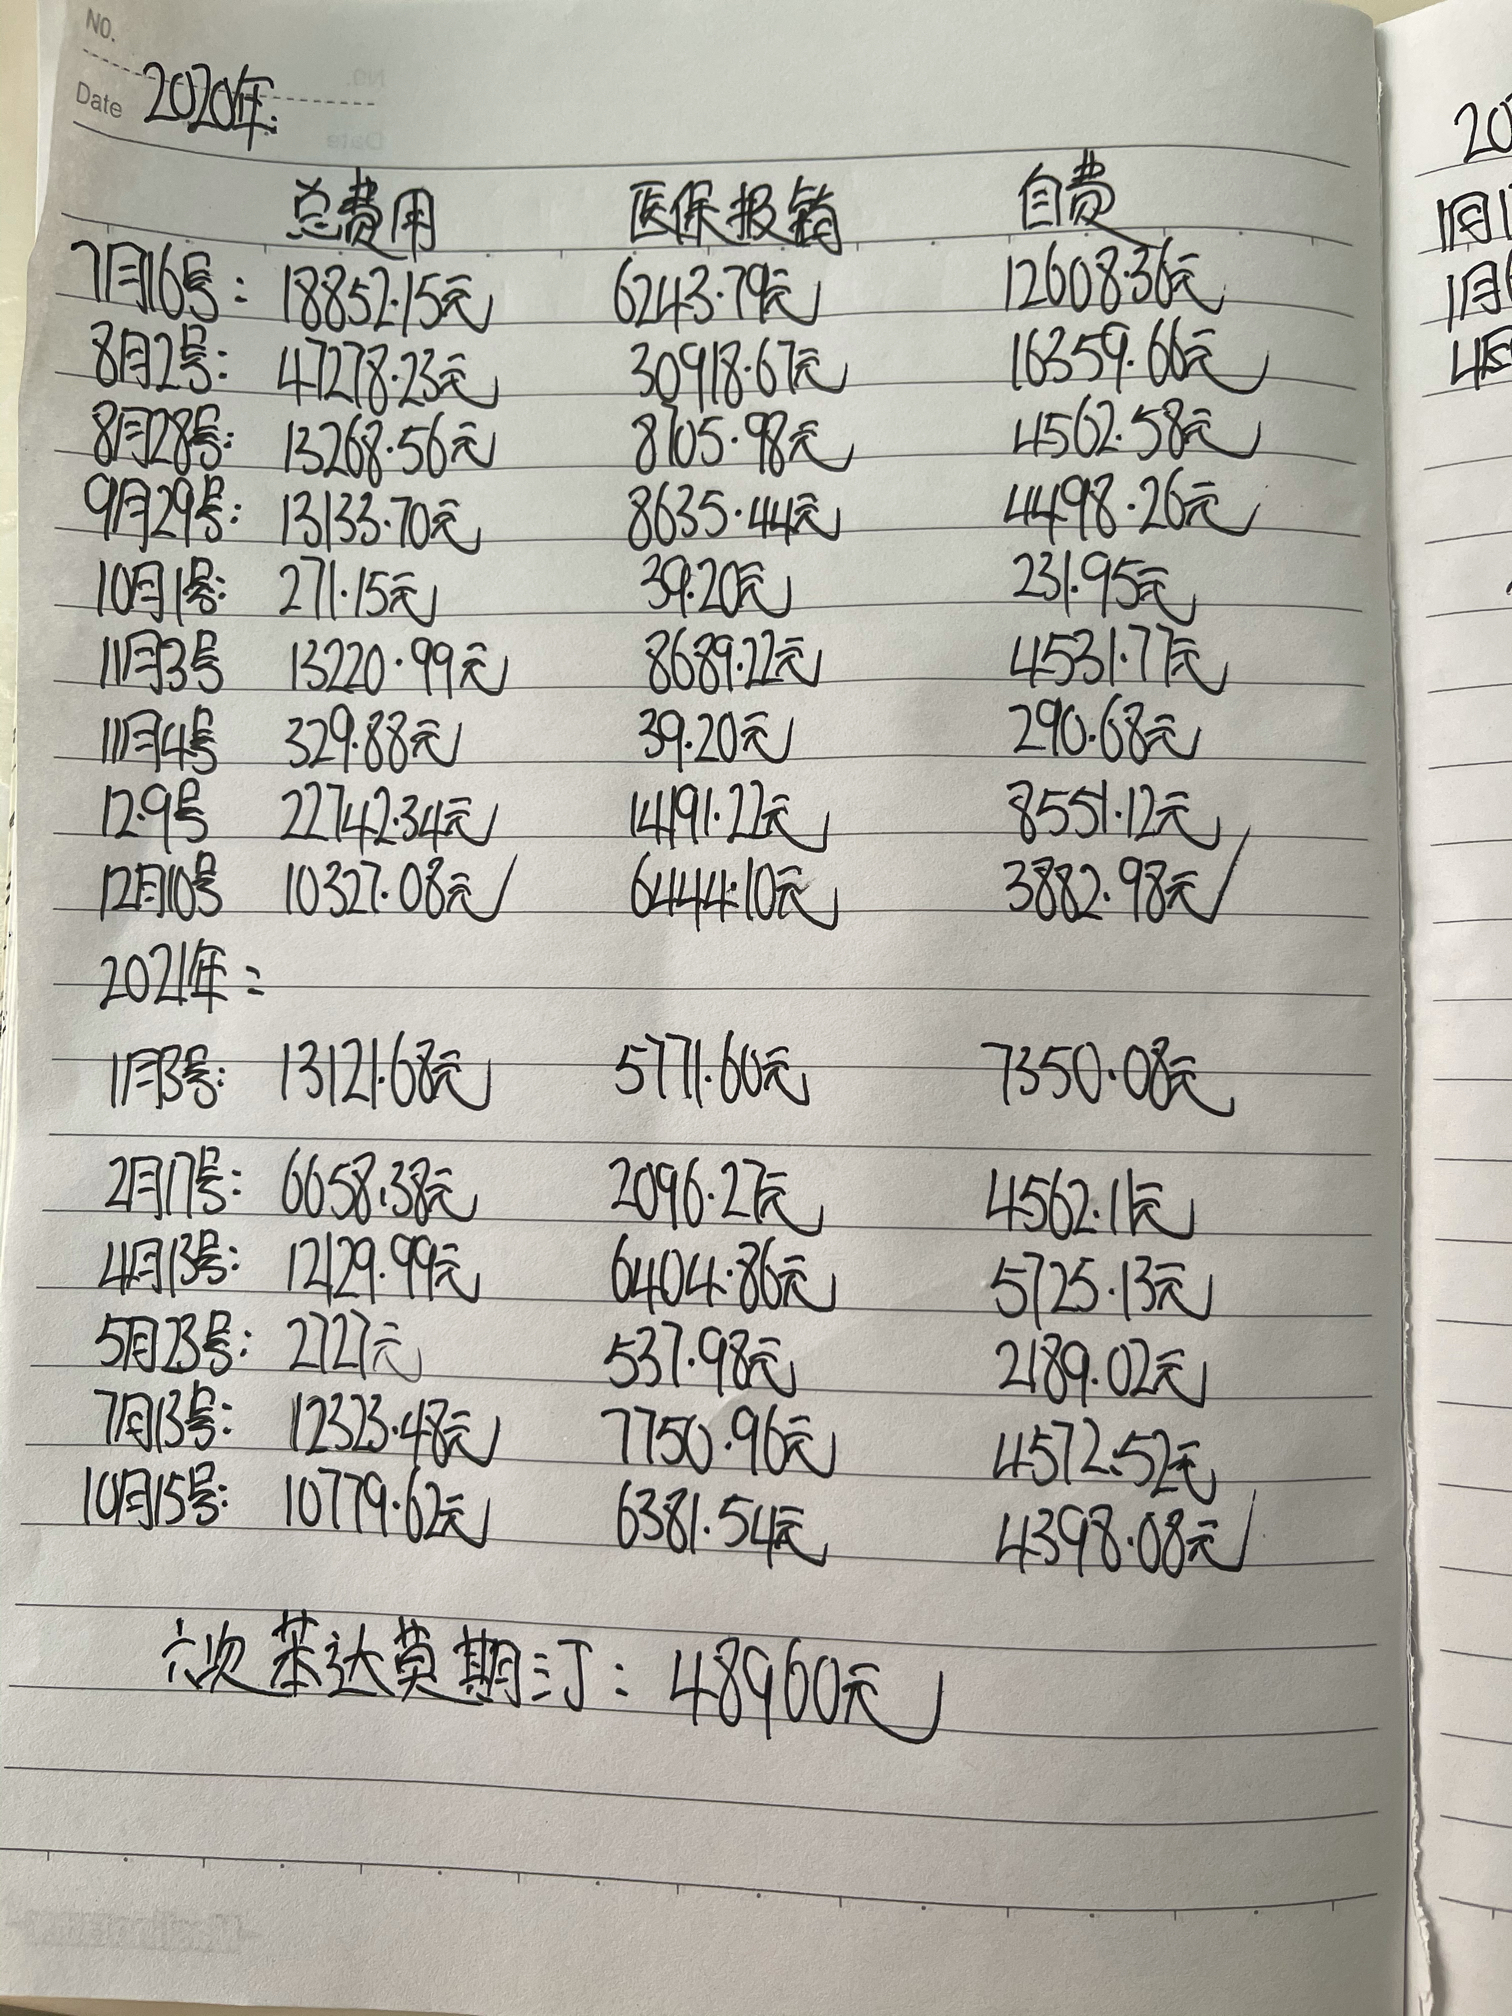 NO.
Date 2020年:
总费用 医保报销 自费
7月16号: 18852.15元 6243.79元 12608.36元
8月2号: 47278.23元 30918.67元 16359.66元
8月28号: 13268.56元 8705.98元 4562.58元
9月29号: 13133.70元 8635.44元 4498.26元
10月1号: 271.15元 39.20元 231.95元
11月3号 13220.99元 8689.22元 4531.77元
11月4号 329.88元 39.20元 290.68元
12.9号 22742.34元 14191.22元 8551.12元
12月10号 10327.08元 6444.10元 3882.98元
2021年:
1月3号: 13121.68元 5771.60元 7350.08元
2月17号: 6658.38元 2096.27元 4562.11元
4月13号: 12129.99元 6404.86元 5725.13元
5月23号: 2727元 537.98元 2189.02元
7月13号: 12323.48元 7750.96元 4572.52元
10月15号: 10779.62元 6381.54元 4398.08元
六次苯达莫期汀: 48960元
20
1月1
1月